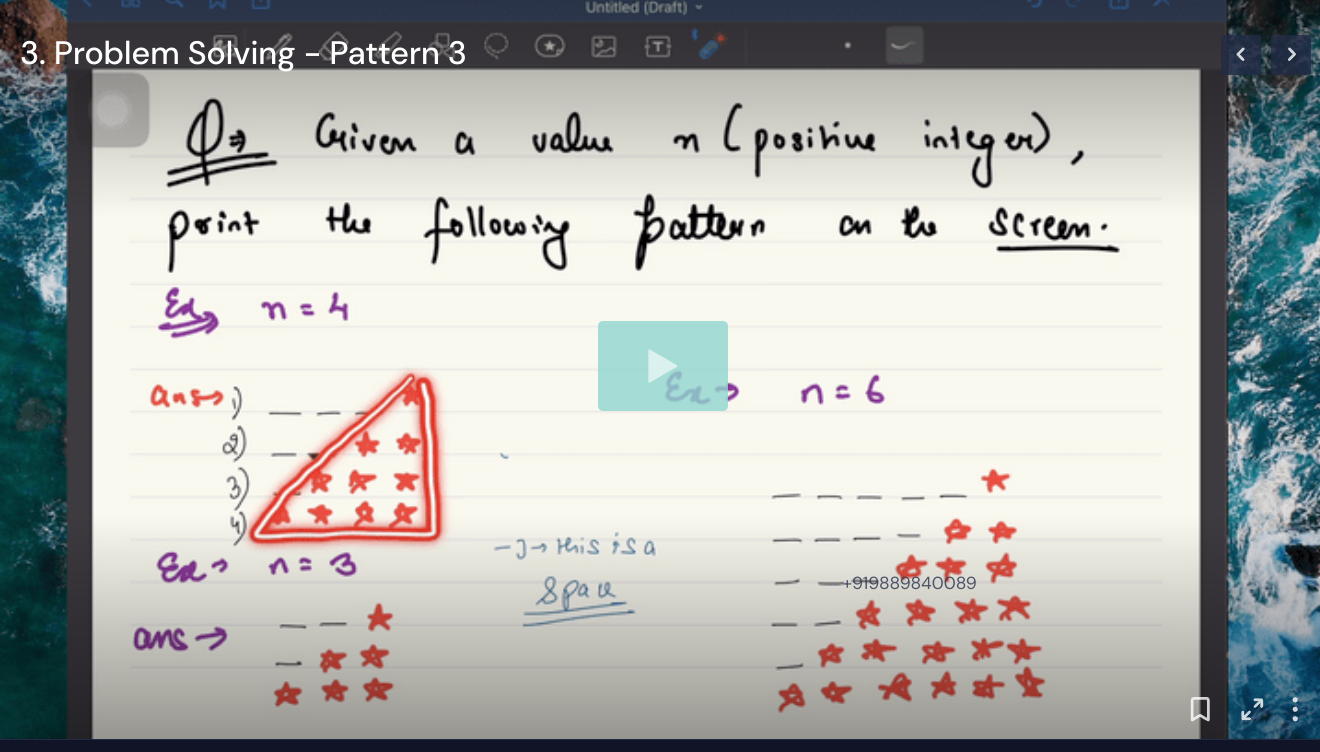 Untitled (Draft)
3. Problem Solving - Pattern 3
Q⇒ Given a value n (positive integer),
print the following pattern on the screen.
Ex⇒ n = 4
ans→ 1)
2)
3)
4)
Ex→ n = 6
Ex→ n = 3
ans→
-]→ this is a
Space
+919889840089